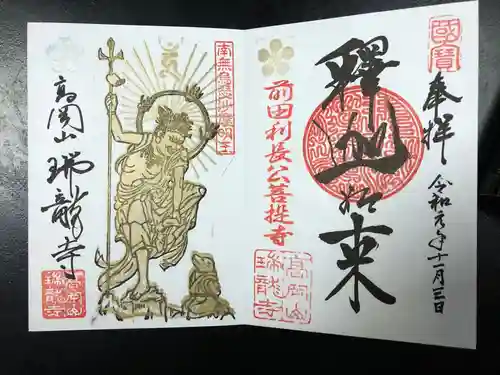 國寶
奉拝
令和元年十一月三日
釋迦如来
前田利長公菩提寺
高岡山
瑞龍寺
南無烏瑟沙摩明王
高岡山 瑞龍寺
高岡山
瑞龍寺